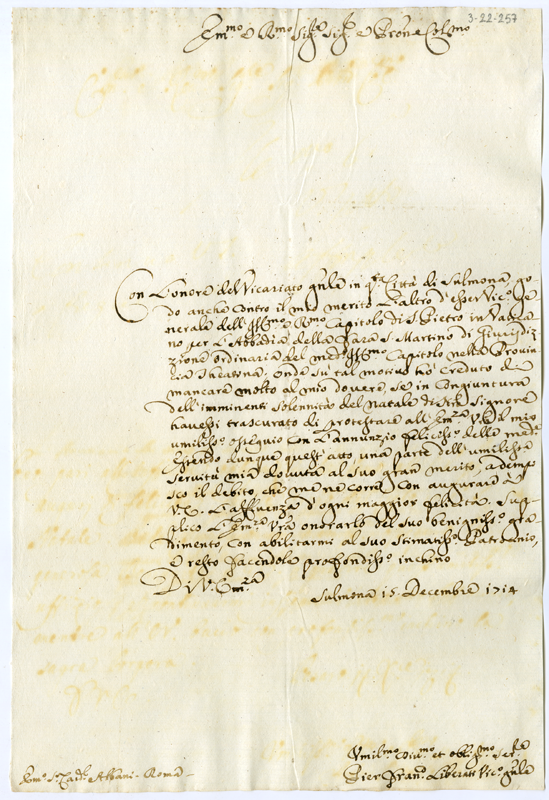 3-22-257
Em.mo e R.mo Sig.re Sig.r e Pron.e Col.mo
Con l'onore del Vicariato gnle in q.ta Città di Sulmona go
do anche contro il mio merito l'altro d'esser Vic.o Ge
nerale dell'Ill.mo e R.mo Capitolo di S. Pietro in Vatica
no per l'Abbadia della Fara S. Martino di Giurisdiz
zione ordinaria del med.o Ill.mo Capitolo nella Provin
cia Theatina. Onde sù tal motivo hò creduto di
mancare molto al mio dovere, se in congiuntura
dell'imminenti solennità del natale di
havessi trascurato di protestare all'Em.za V.ra il mio
umiliss.o ossequio con l'annunzio feliciss.o delle med.e
Essendo dunque quest'atto una parte dell'umilissima
servitù mia dovuta al suo gran merito, adempi
sco il debito, che me ne corre con augurare a
V.E. l'affluenza d'ogni maggior felicità. Sup
plico l'Em.za V.ra onorarlo del suo benigniss.o gra
dimento, con abilitarmi al suo stimatiss.o Patrocinio,
e resto facendole profondiss.o inchino
Di V. Em.za
Sulmona 15 Decembre 1714
Umil.mo Div.mo et obblig.mo ser.re
Pier Fran.o Liberati Vic.o gnle
Em.o S. Card.e Albani - Roma -